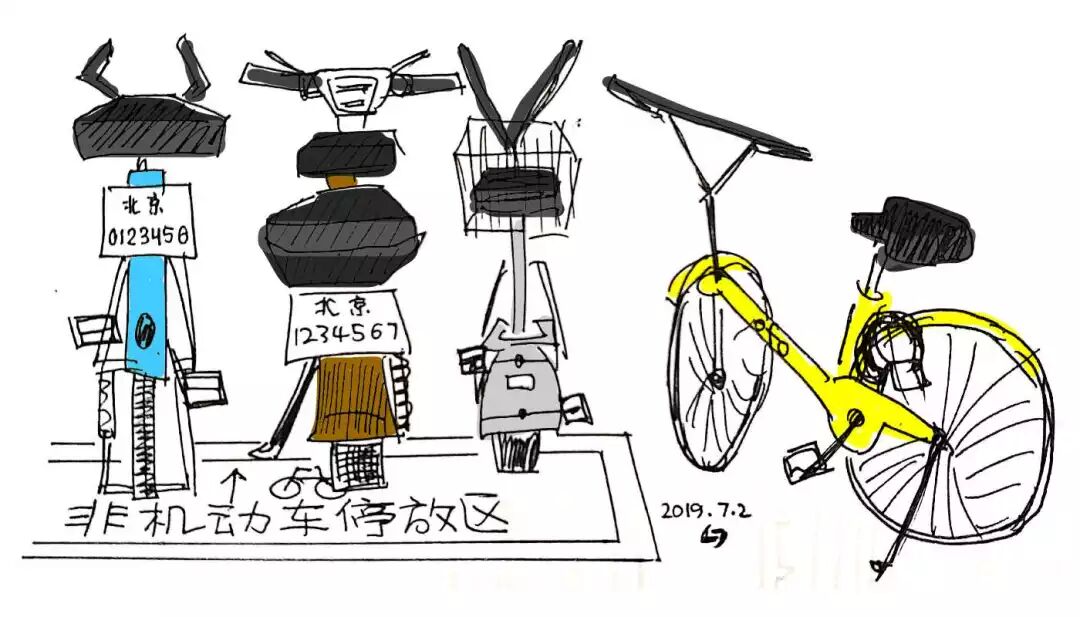 北京
0123458
北京
1234567
ofo
非机动车停放区
2019.7.2